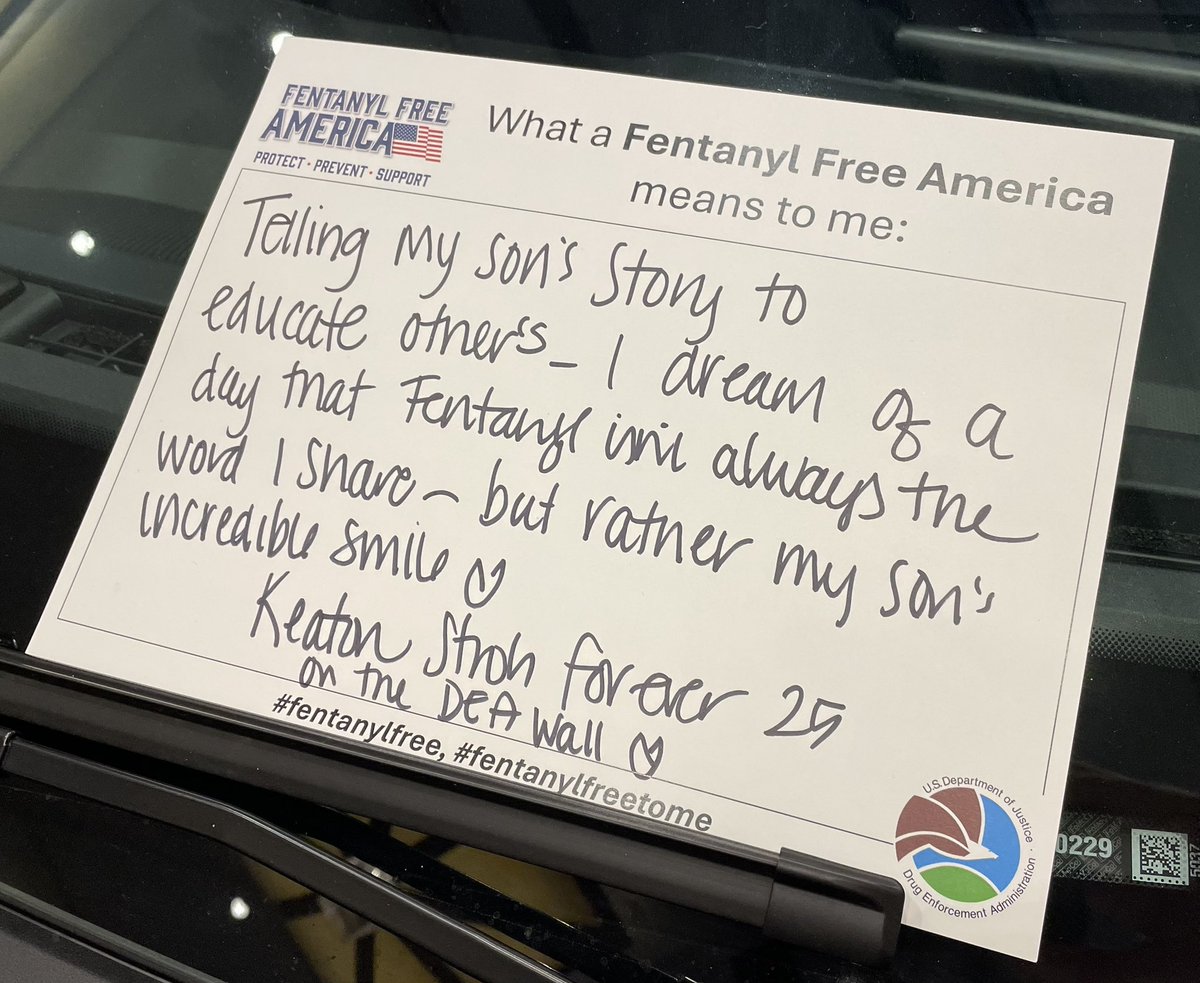 FENTANYL FREE
AMERICA
PROTECT • PREVENT • SUPPORT
What a Fentanyl Free America
means to me:
Telling my son's story to
educate others - I dream of a
day that Fentanyl isn't always the
word I share - but rather my son's
incredible smile ♡
Keaton Stroh forever 25
on the DEA Wall ♡
#fentanylfree, #fentanylfreetome
U.S. Department of Justice
Drug Enforcement Administration
0229